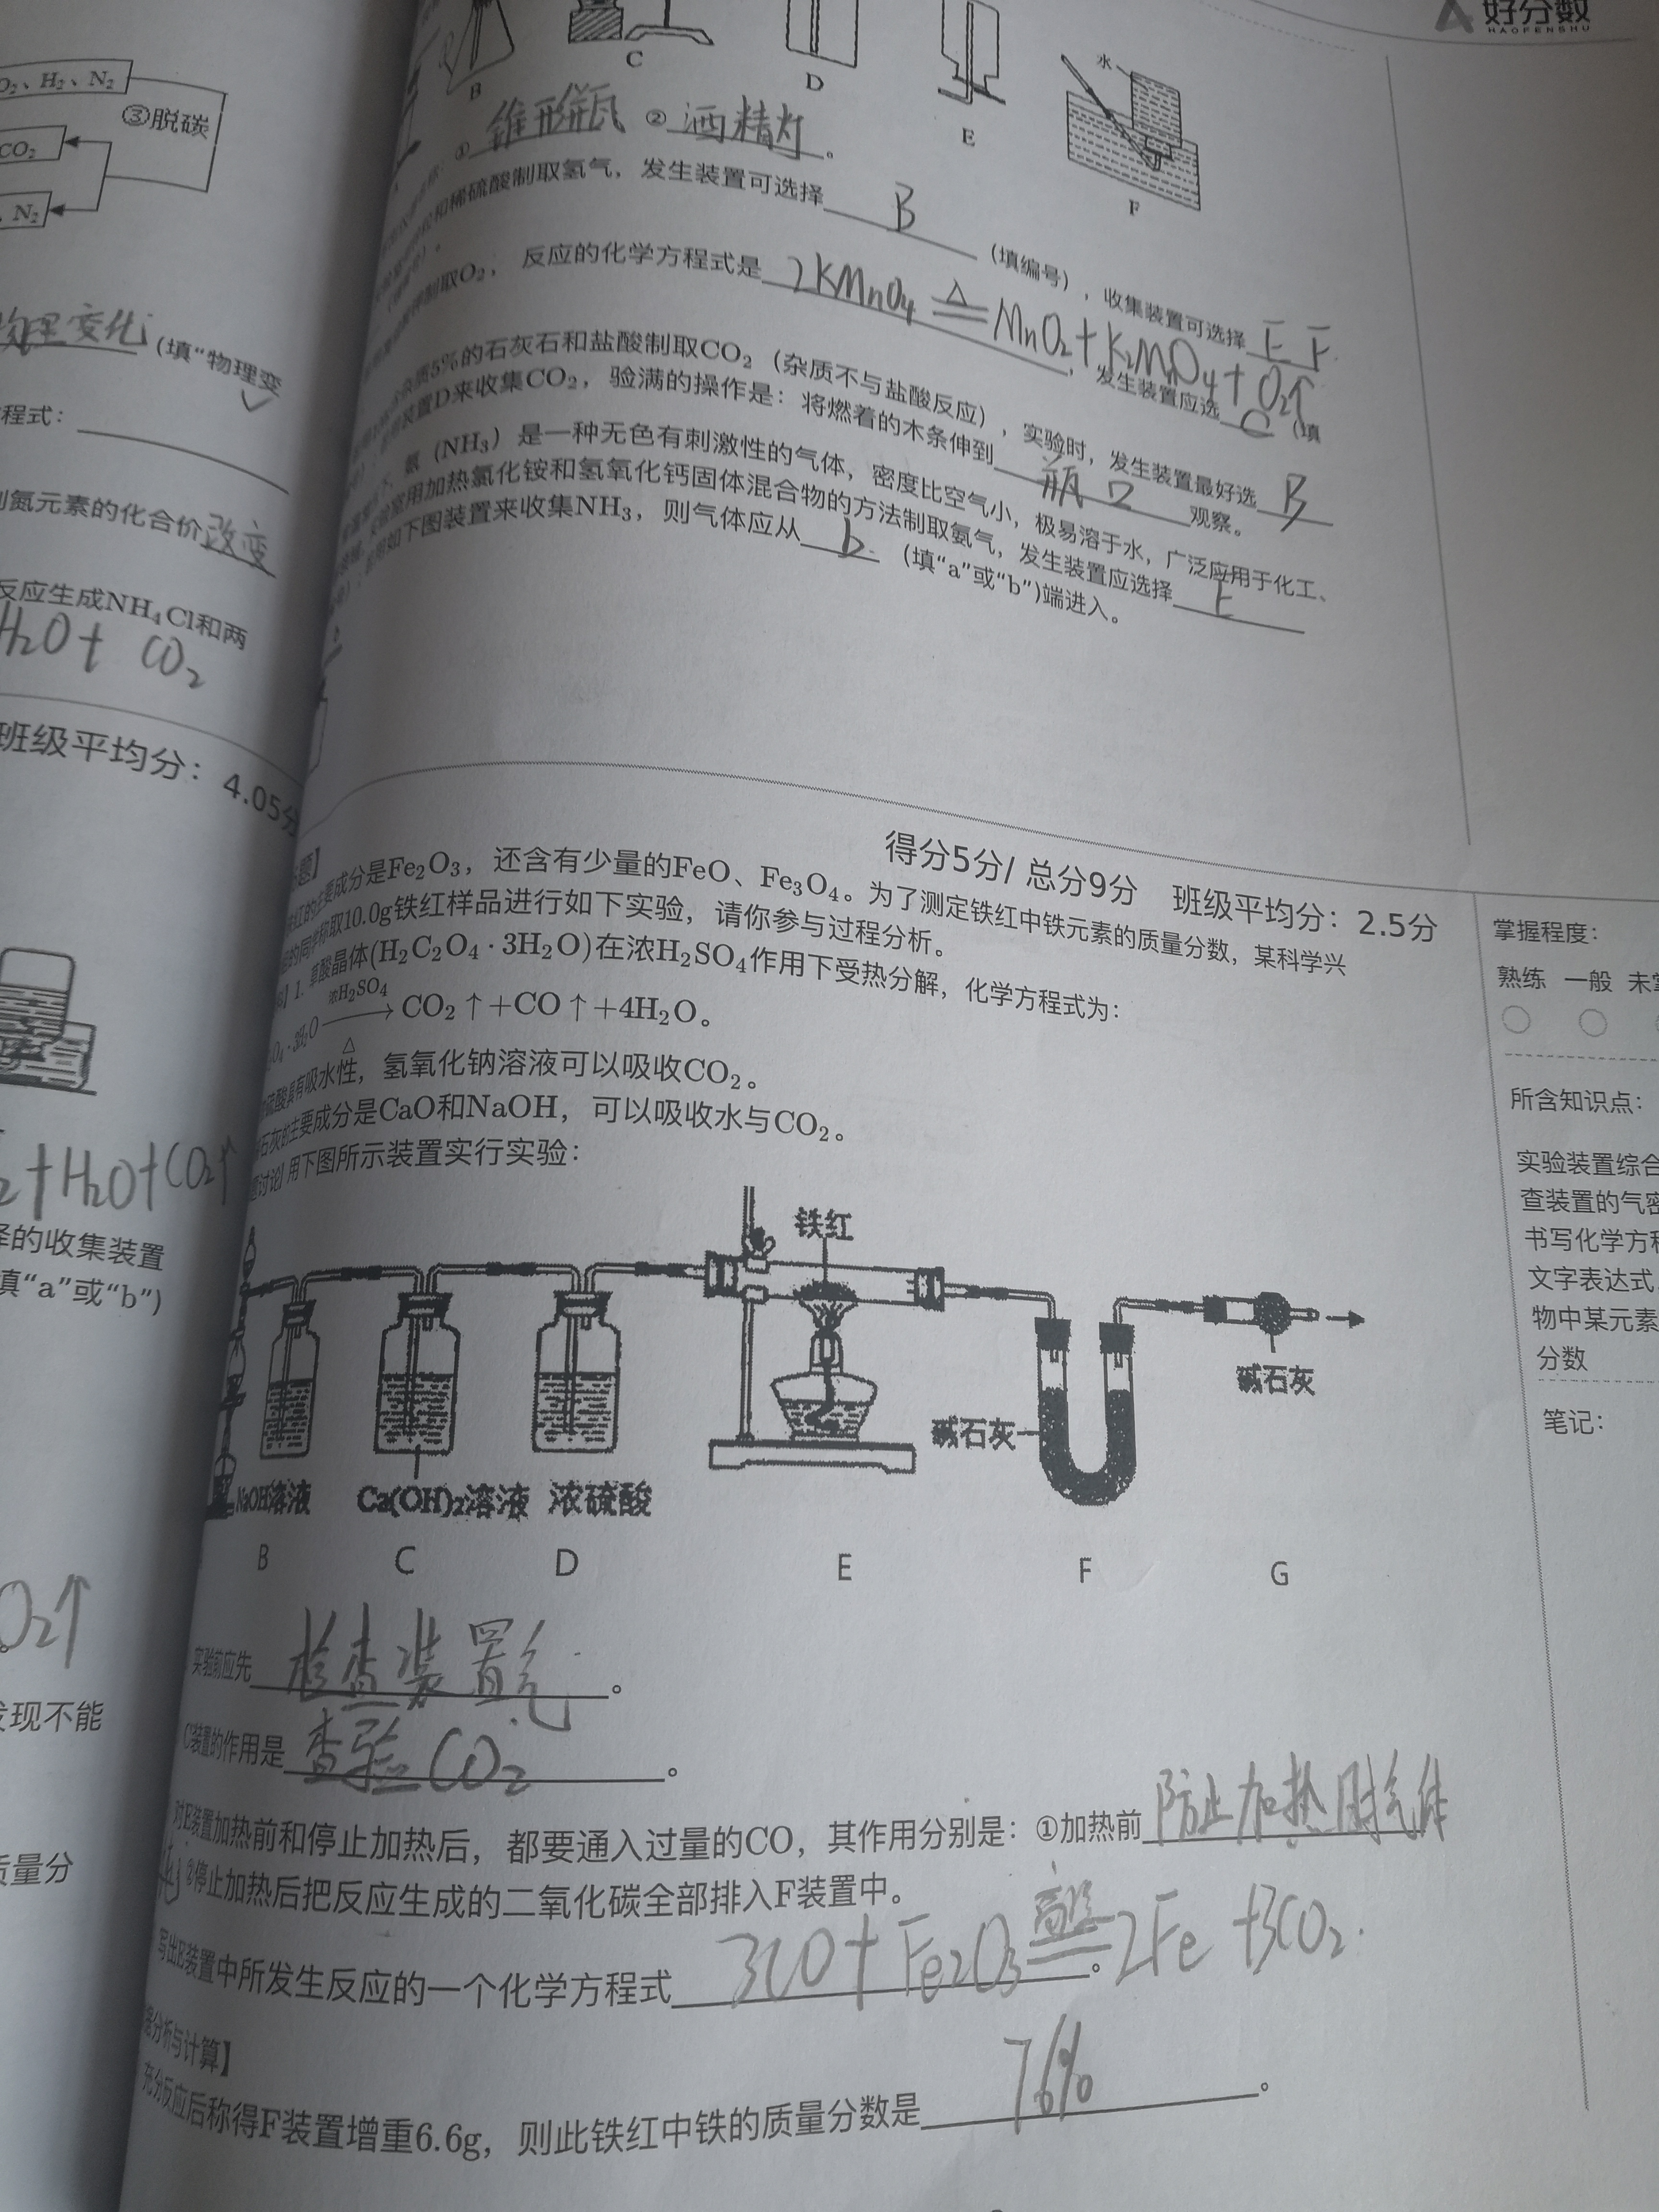 好分数
HAOFENSHU
O₂、H₂、N₂
③脱碳
CO₂
N₂
物理变化 (填“物理变
程式：
氮元素的化合价 改变
反应生成NH₄Cl和两
H₂O+ CO₂
班级平均分：4.05分
+H₂O+CO₂↑
的收集装置
填“a”或“b”)
O₂↑
发现不能
质量分
B
C
D
E
水
F
① 锥形瓶 ② 洒精灯 。
和稀硫酸制取氢气，发生装置可选择 B (填编号)，收集装置可选择 E F
制取O₂，反应的化学方程式是 2KMnO₄ △ MnO₂+K₂MnO₄+O₂↑ ，发生装置应选 C (填
5%的石灰石和盐酸制取CO₂（杂质不与盐酸反应），实验时，发生装置最好选 B
装置D来收集CO₂，验满的操作是：将燃着的木条伸到 瓶口 观察。
(NH₃) 是一种无色有刺激性的气体，密度比空气小，极易溶于水，广泛应用于化工、
用加热氯化铵和氢氧化钙固体混合物的方法制取氨气，发生装置应选择 E
如下图装置来收集NH₃，则气体应从 b (填“a”或“b”)端进入。
得分5分/ 总分9分 班级平均分：2.5分
题】
红的主要成分是Fe₂O₃，还含有少量的FeO、Fe₃O₄。为了测定铁红中铁元素的质量分数，某科学兴
的同学称取10.0g铁红样品进行如下实验，请你参与过程分析。
】1. 草酸晶体(H₂C₂O₄·3H₂O)在浓H₂SO₄作用下受热分解，化学方程式为：
O₄·3H₂O 浓H₂SO₄ △ → CO₂↑+CO↑+4H₂O。
硫酸具有吸水性，氢氧化钠溶液可以吸收CO₂。
石灰的主要成分是CaO和NaOH，可以吸收水与CO₂。
讨论】用下图所示装置实行实验：
铁红
碱石灰
碱石灰
NaOH溶液 Ca(OH)₂溶液 浓硫酸
B C D E F G
实验前应先 检查装置气 。
C装置的作用是 查验CO₂ 。
对E装置加热前和停止加热后，都要通入过量的CO，其作用分别是：①加热前 防止加热时气体
②停止加热后把反应生成的二氧化碳全部排入F装置中。
写出E装置中所发生反应的一个化学方程式 3CO+Fe₂O₃ 高温 2Fe+3CO₂ 。
分析与计算】
充分反应后称得F装置增重6.6g，则此铁红中铁的质量分数是 76% 。
掌握程度：
熟练 一般
所含知识点：
实验装置综合
查装置的气密
书写化学方程
文字表达式
物中某元素
分数
笔记：